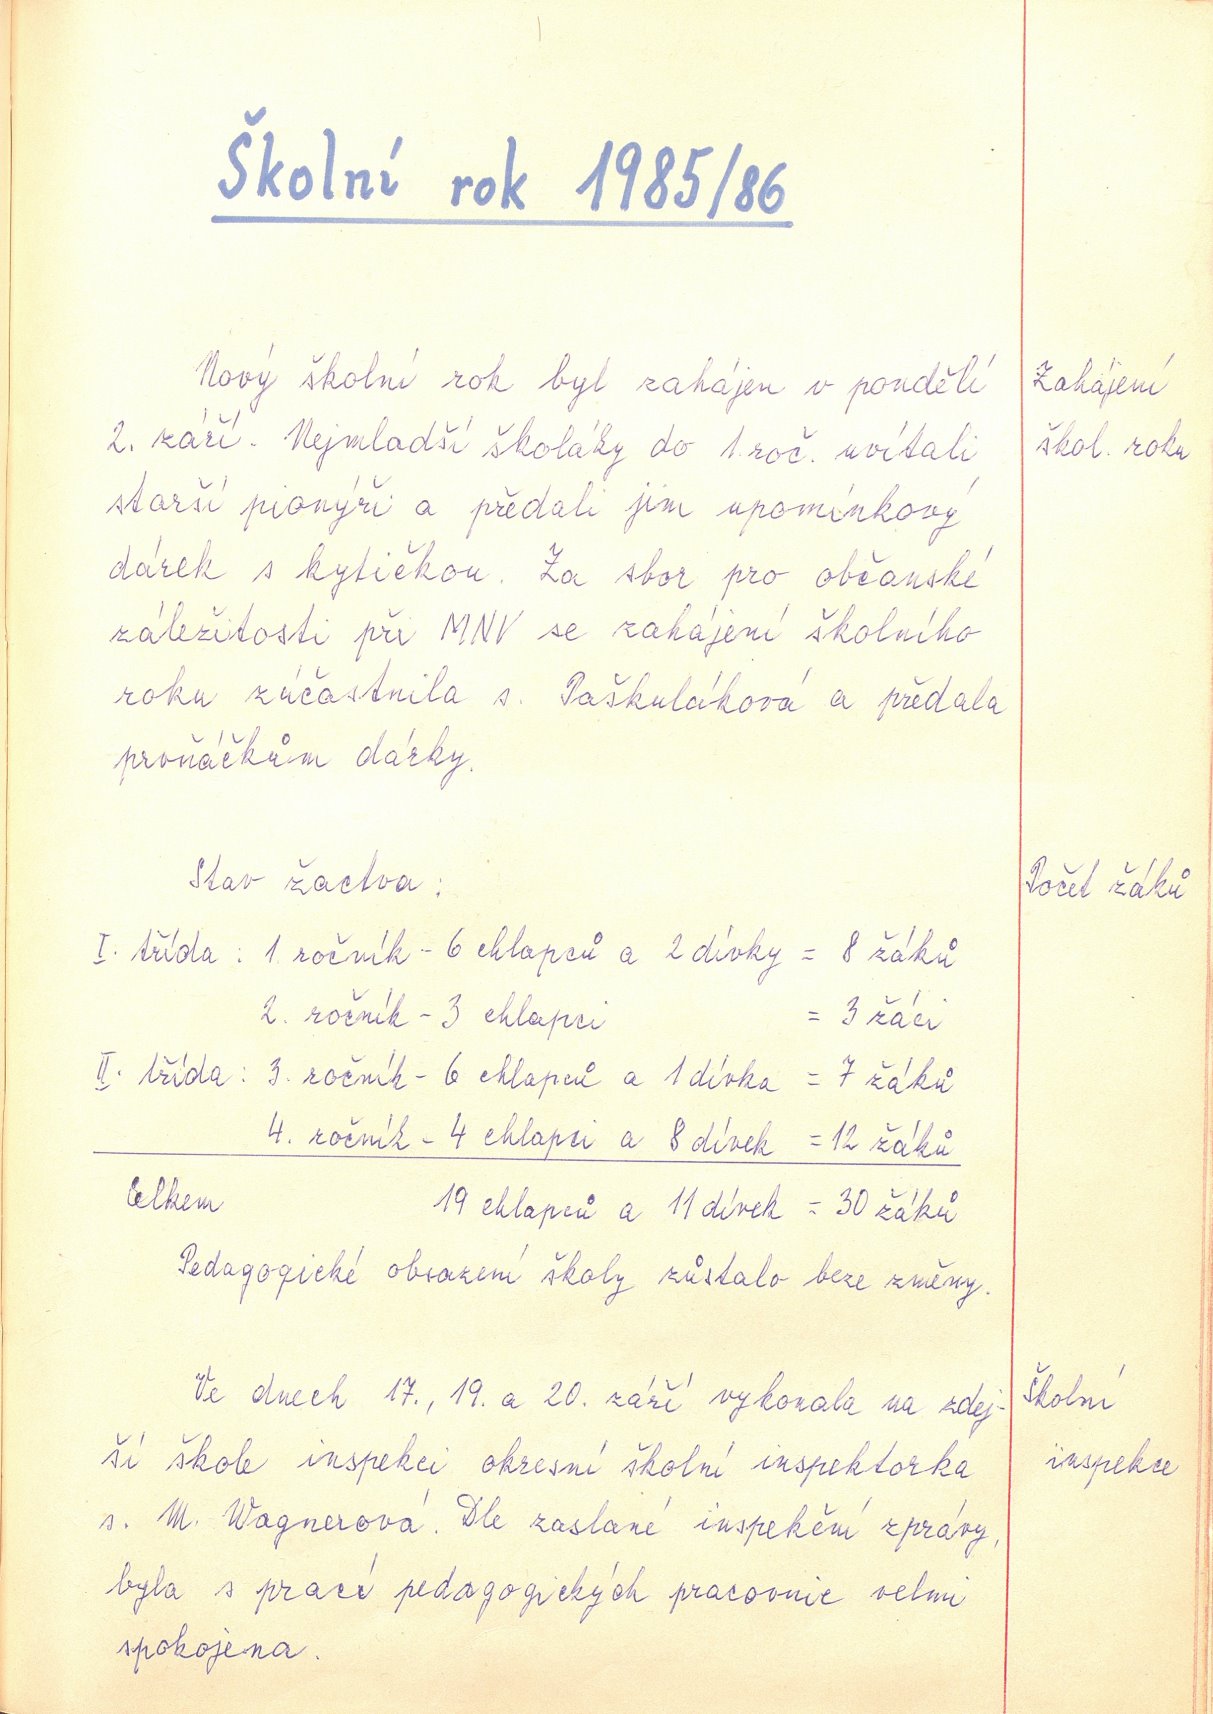 Školní rok 1985/86
Nový školní rok byl zahájen v pondělí
Zahájení
2. září. Nejmladší školáky do 1. roč. uvítali
škol. roku
starší pionýři a předali jim upomínkový
dárek s kytičkou. Za sbor pro občanské
záležitosti při MNV se zahájení školního
roku zúčastnila s. Paškuláková a předala
prvňáčkům dárky.
Stav žactva:
Počet žáků
I. třída: 1. ročník - 6 chlapců a 2 dívky = 8 žáků
2. ročník - 3 chlapci = 3 žáci
II. třída: 3. ročník - 6 chlapců a 1 dívka = 7 žáků
4. ročník - 4 chlapci a 8 dívek = 12 žáků
Celkem 19 chlapců a 11 dívek = 30 žáků
Pedagogické obsazení školy zůstalo beze změny.
Ve dnech 17., 19. a 20. září vykonala na zdej-
Školní
ší škole inspekci okresní školní inspektorka
inspekce
s. M. Wagnerová. Dle zaslané inspekční zprávy,
byla s prací pedagogických pracovnic velmi
spokojena.